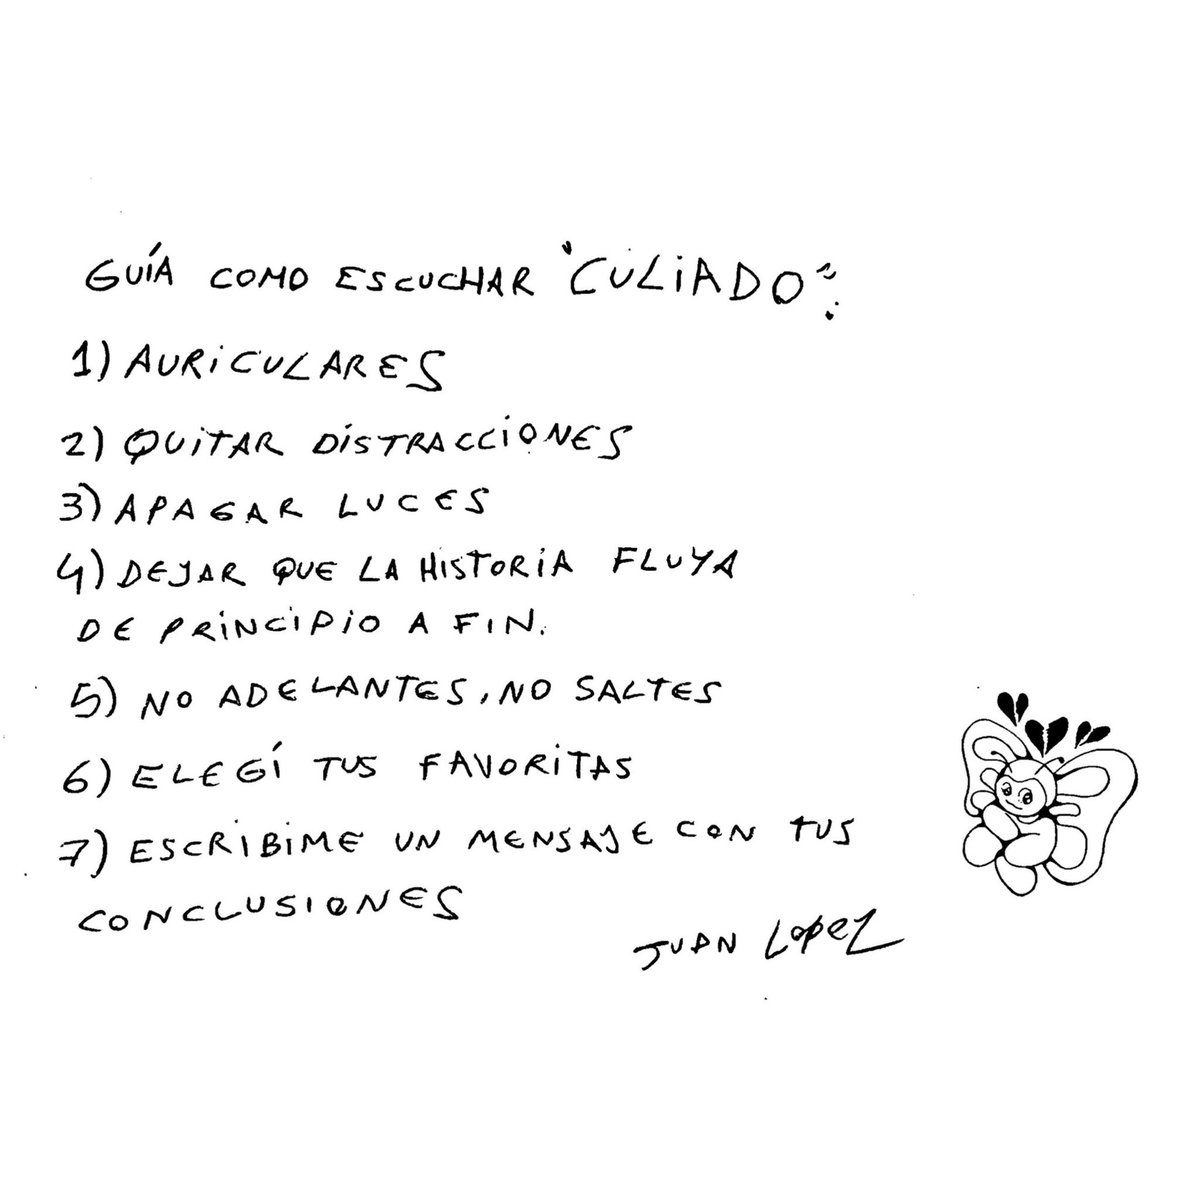 GUÍA COMO ESCUCHAR "CULIADO":
1) AURICULARES
2) QUITAR DISTRACCIONES
3) APAGAR LUCES
4) DEJAR QUE LA HISTORIA FLUYA
DE PRINCIPIO A FIN.
5) NO ADELANTES, NO SALTES
6) ELEGÍ TUS FAVORITAS
7) ESCRIBIME UN MENSAJE CON TUS
CONCLUSIONES
JUAN LOPEZ